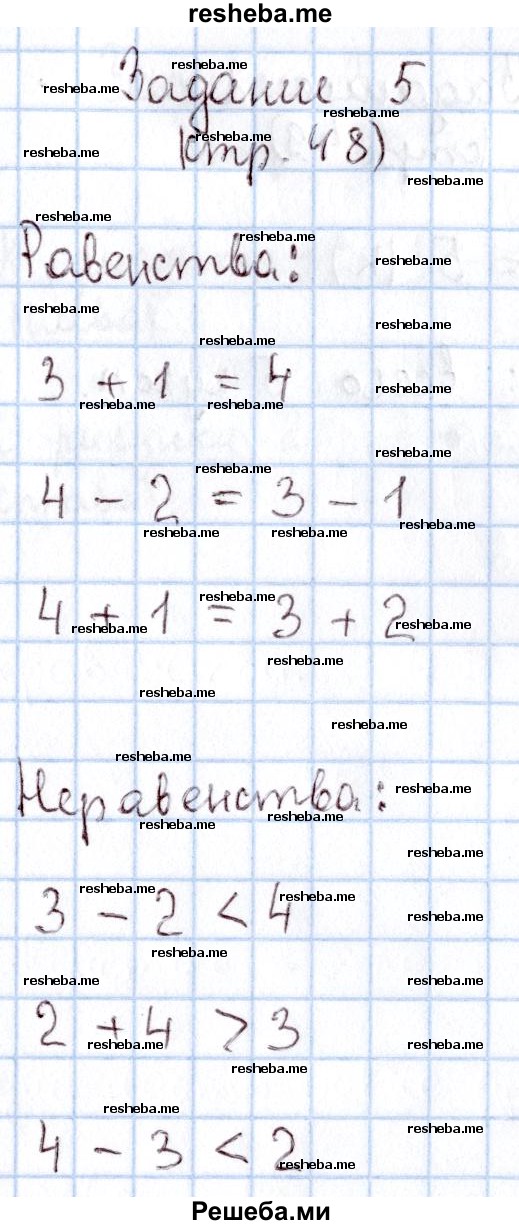 resheba.me
Задание 5
(стр. 48)
Равенства:
3 + 1 = 4
4 - 2 = 3 - 1
4 + 1 = 3 + 2
Неравенства:
3 - 2 < 4
2 + 4 > 3
4 - 3 < 2
Решеба.ми